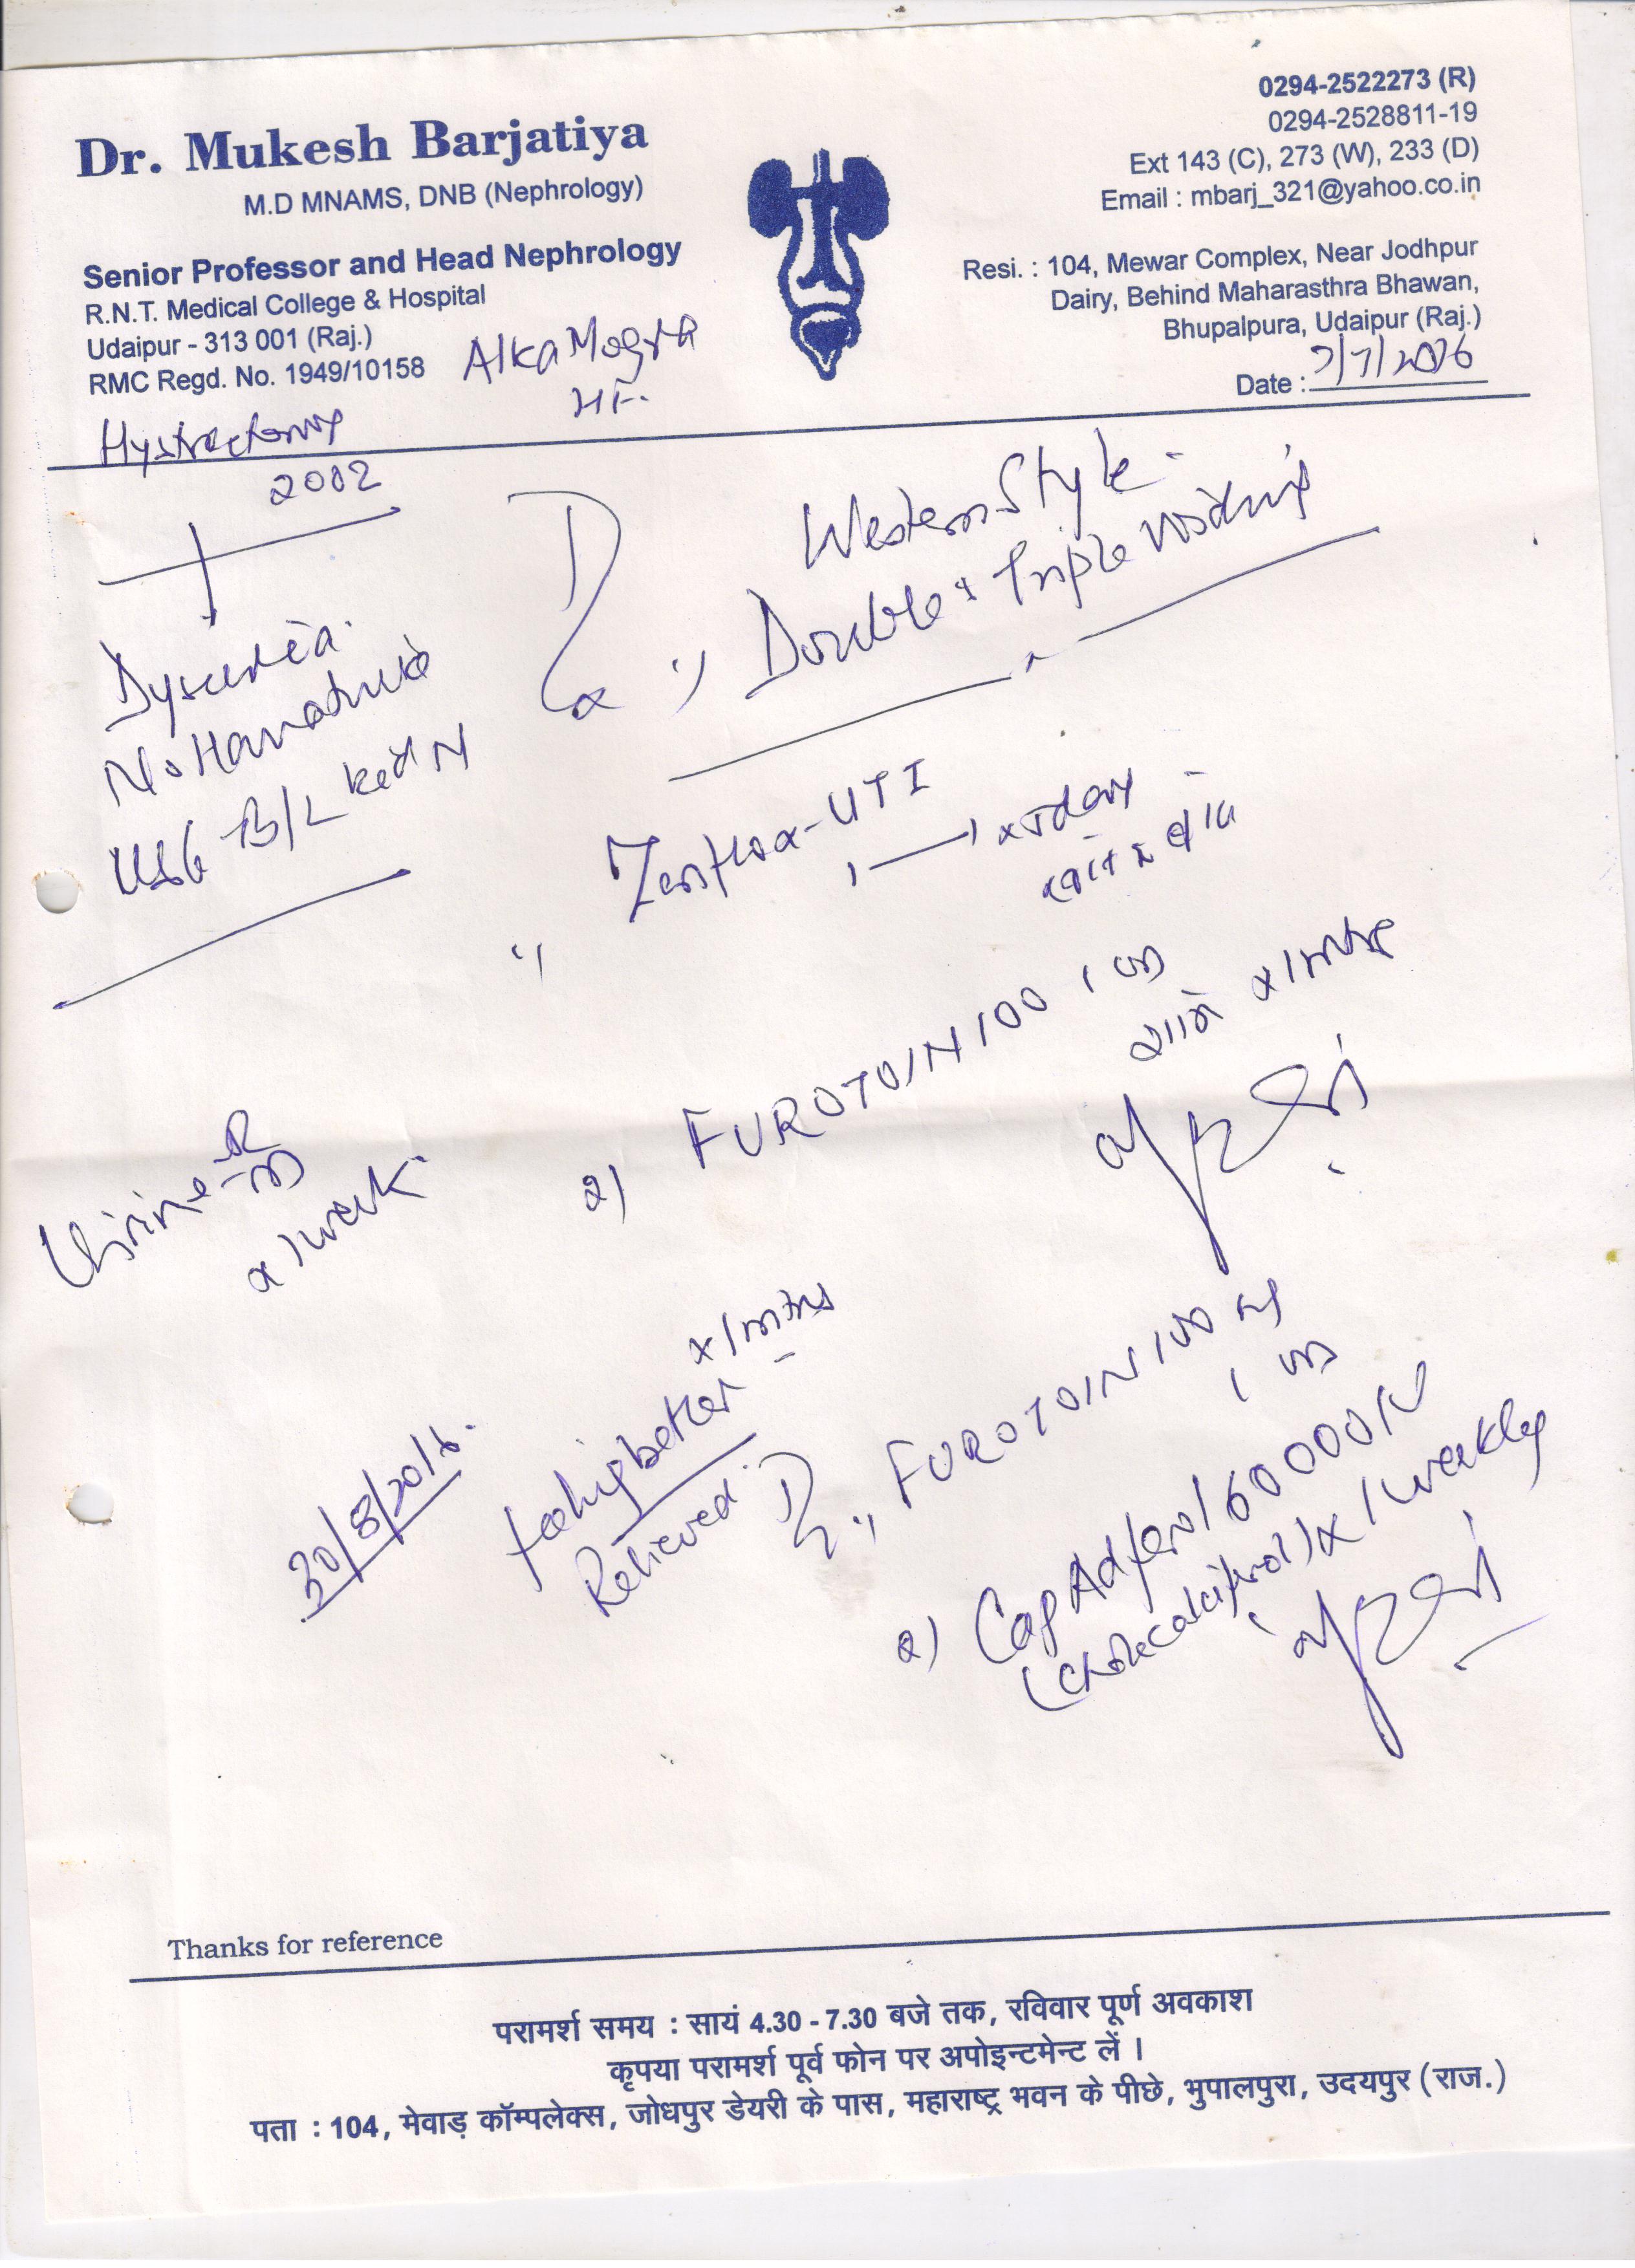 Dr. Mukesh Barjatiya
M.D MNAMS, DNB (Nephrology)
Senior Professor and Head Nephrology
R.N.T. Medical College & Hospital
Udaipur - 313 001 (Raj.)
RMC Regd. No. 1949/10158
0294-2522273 (R)
0294-2528811-19
Ext 143 (C), 273 (W), 233 (D)
Email : mbarj_321@yahoo.co.in
Resi. : 104, Mewar Complex, Near Jodhpur
Dairy, Behind Maharasthra Bhawan,
Bhupalpura, Udaipur (Raj.)
Date :
Alka Mogra
Hystrectomy
2002
Dysuria.
No Hamaturia
USG B/L kid N
Western Style
Double & Triple voiding
Zenflox-UTI
1 — 1 x 5 day
FUROTOIN 100
शाम x 1 mths
2)
Urine
x 1 week
30/8/2016.
feeling better
x 1 mths
Relieved.
FUROTOIN 100
2) Cap Adfero 1 60000 IU
(Cholecalciferol) x 1 weekly
Thanks for reference
परामर्श समय : सायं 4.30 - 7.30 बजे तक, रविवार पूर्ण अवकाश
कृपया परामर्श पूर्व फोन पर अपोइन्टमेन्ट लें ।
पता : 104, मेवाड़ कॉम्पलेक्स, जोधपुर डेयरी के पास, महाराष्ट्र भवन के पीछे, भुपालपुरा, उदयपुर (राज.)